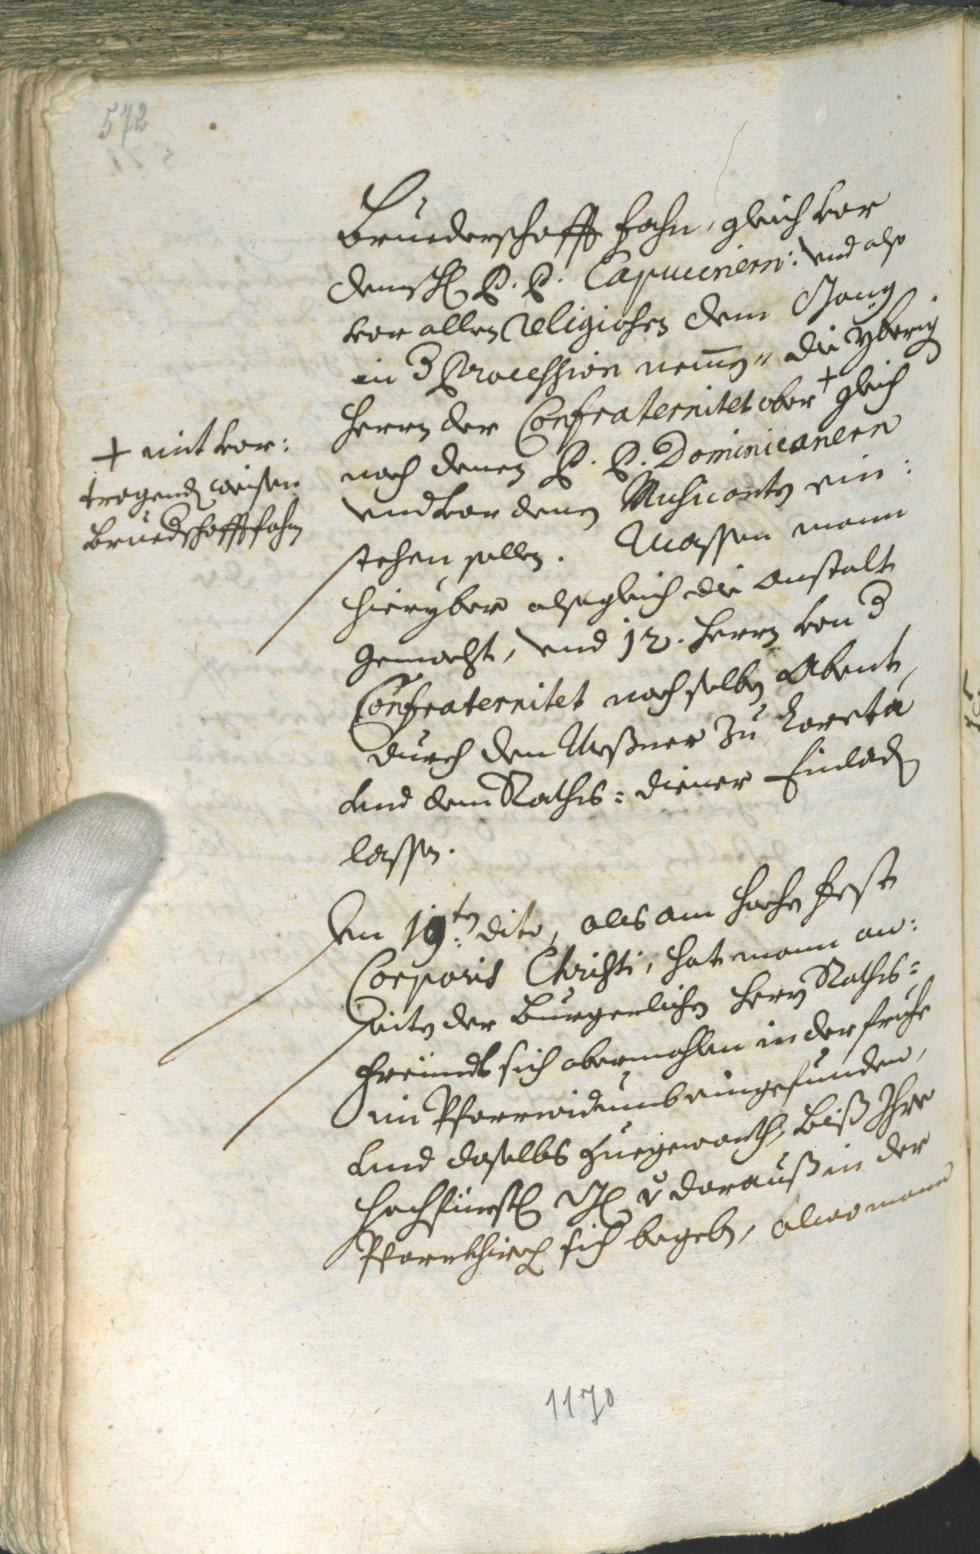 572
Bruederschafft fahn, gleich vor
denen P. P. Capucinern: vnd also
vor allen Religiosen dem Gang
in d Procession nemmen die yberig
herrn der Confraternitet aber + gleich
nach denen P. P. Dominicanern
vnd vor denen Musicanten ein:
stehen sollen. Massen mann
hieryber alsogleich die anstalt
gemacht, vnd 12. herrn von d
Confraternitet noch selben Abent,
durch den Meßner zu Loreta
vnd dem Raths= diener Einladen
lassen.
+ mit vor:
tragendem weisen
Bruedschafft fahn
Den 19.ten dito, als am hochen fest
Corporis Christi, hat mann an:
seiten der Burgerlichen herrn Raths=
freündt sich abermahlen in der fruhe
im Pfarrwidumb eingefunden,
vnd daselbs zuegewarth, biß Ihro
hochfürstl. daraus in der
Pfarrkhirch sich begeben, alwo mann
1170